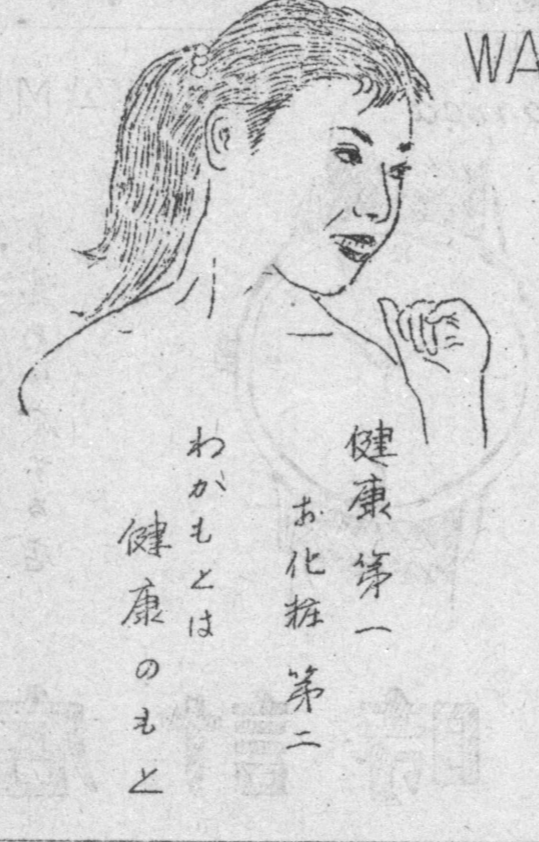 WA
健康第一
お化粧第二
わかもとは
健康のもと